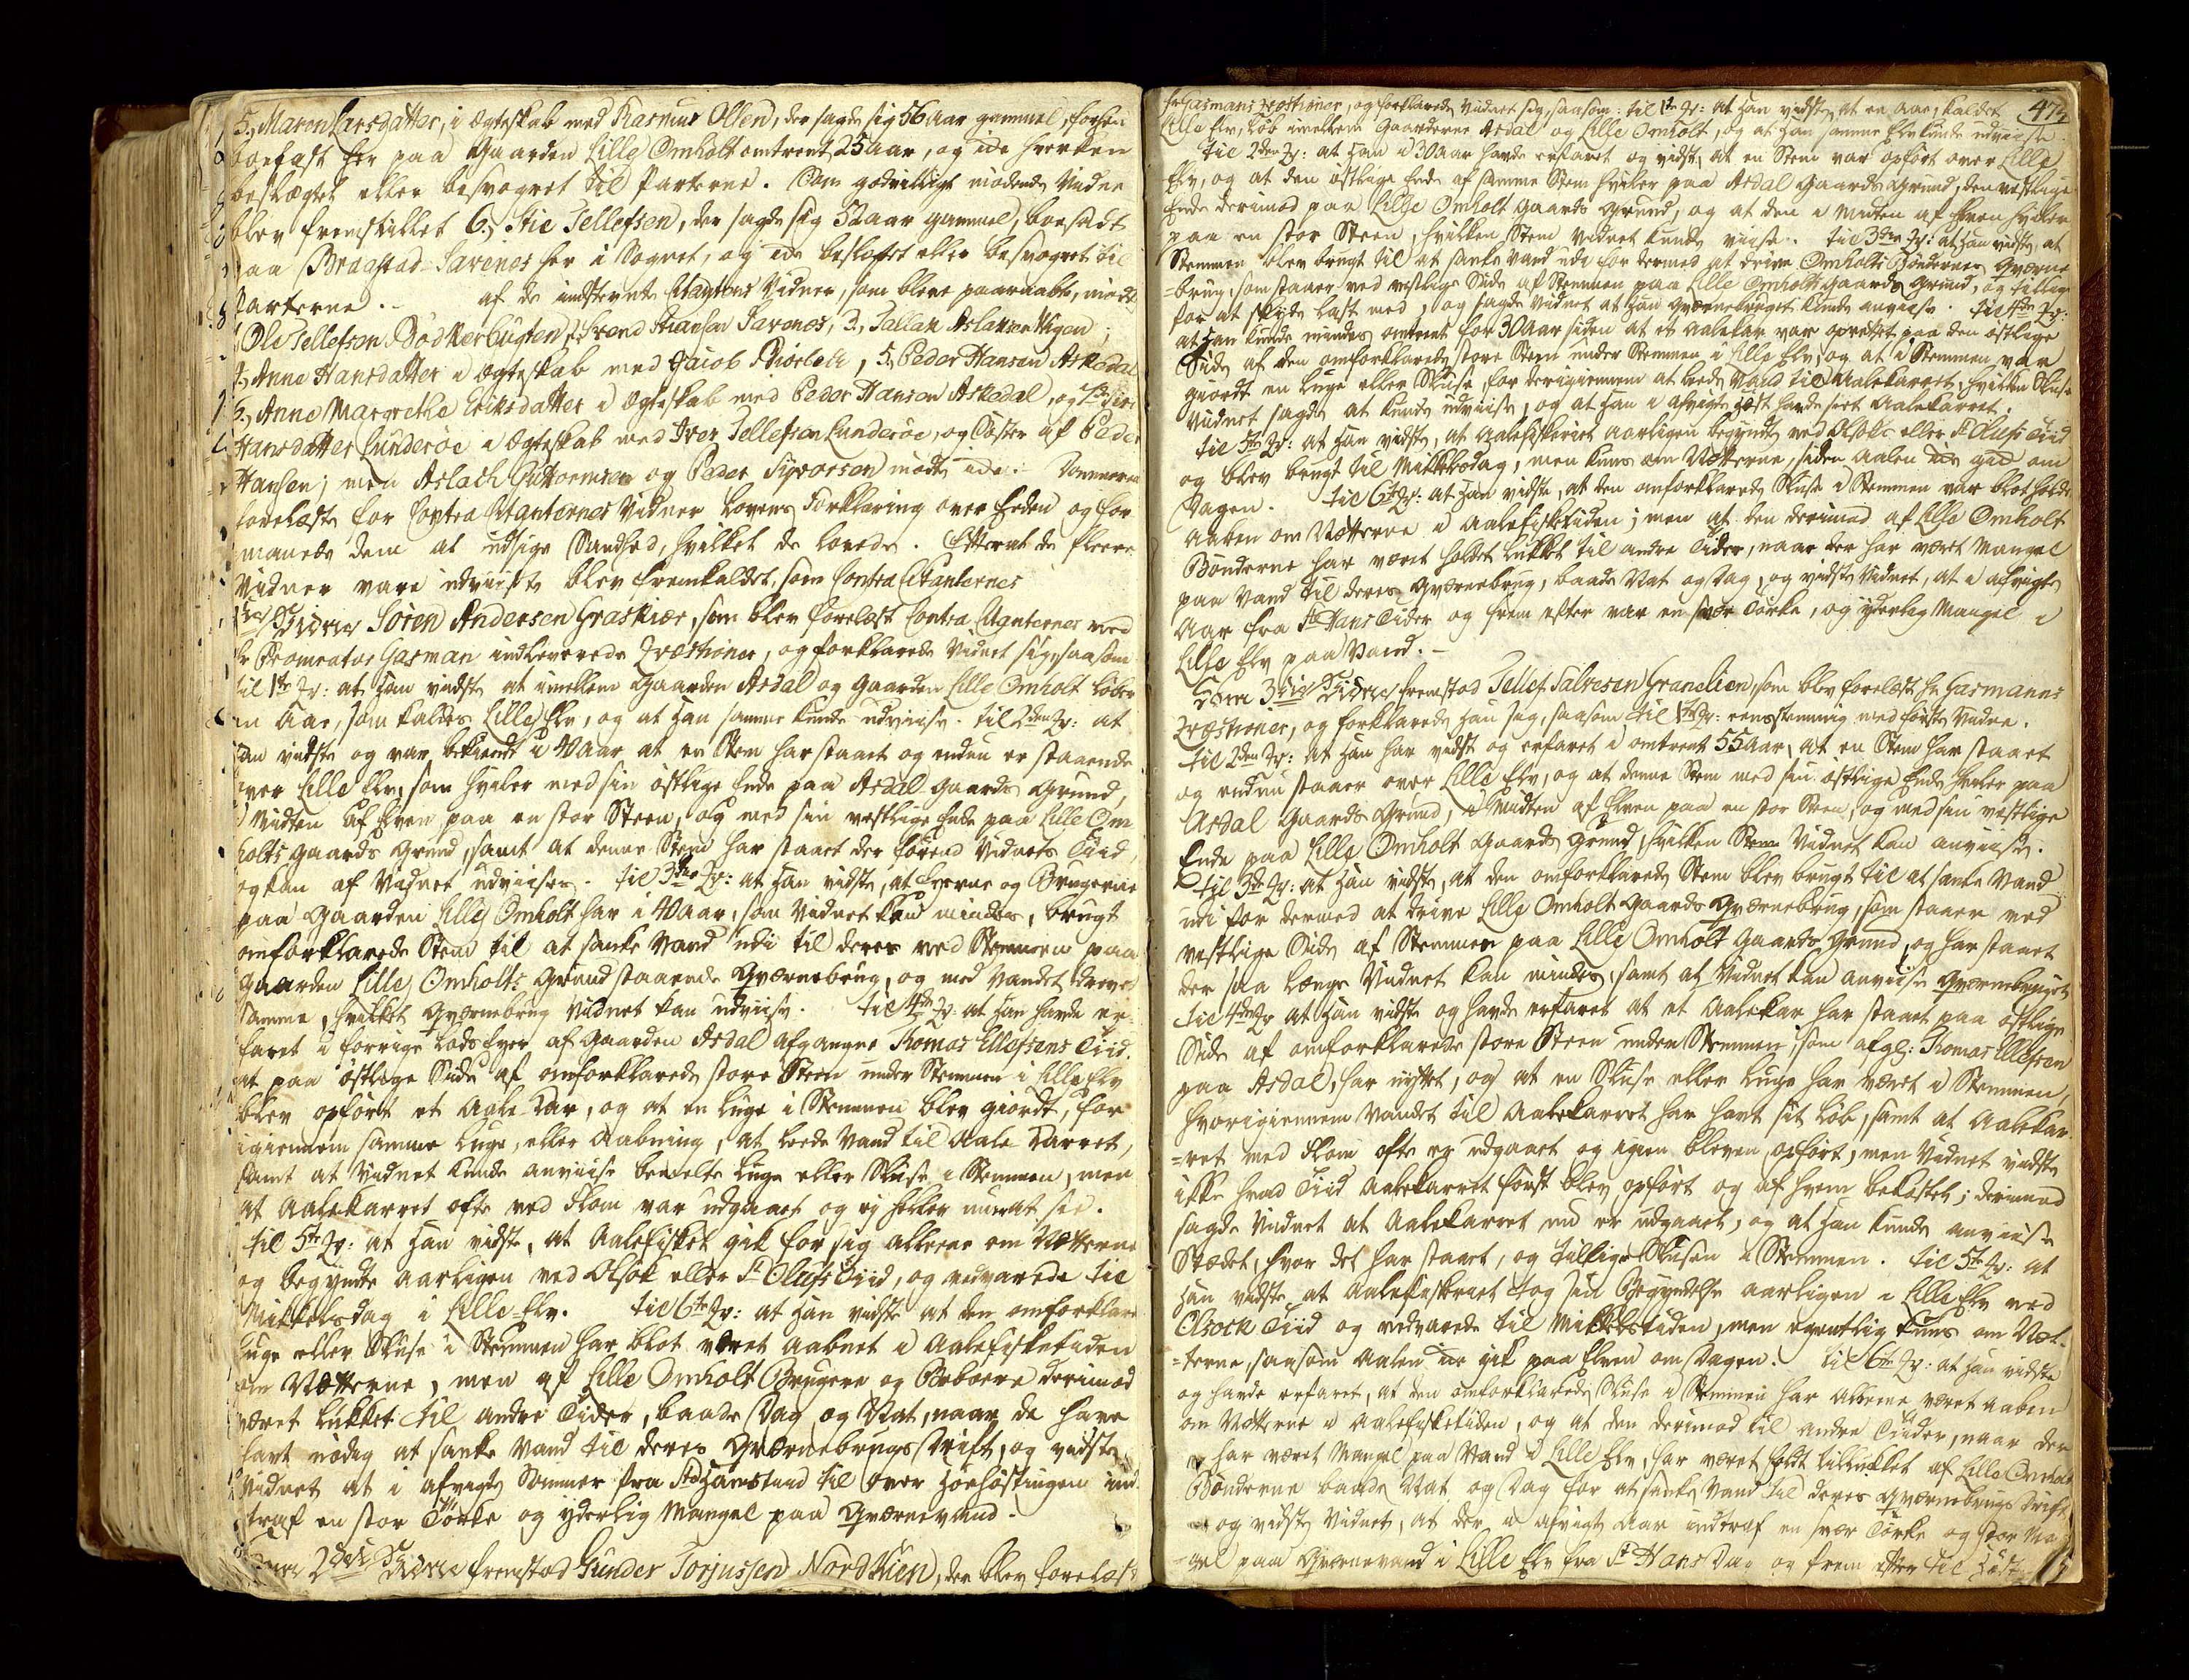 5, Maren Larsdatter, i Ægteskab med Rasmus Olsen, der sagde sig 56 Aar gammel,
boefast her paa Gaarden Lille Omholt omtrent 25 Aar, og ide hverken
beslægtet eller besvogret til Parterne. Som godvilligt mødende Vidne
blev fremstillet 6, Stie Tellefsen, der sagde sig 52 Aar gammel, boesadt
paa Braastad-Savenes her i Sognet, og ide beslegtet eller besvogret til
Parterne. - af de indstevnte Citantens Vidner, som bleve paaraabte, mødte
Ole Tellefsen Bødkerbugten, 2, Svend Hansen Savenes, 3, Tallak Aslaksen Vigen;
4, Anne Hansdatter i Ægteskab med Jacob Biørbek, 5, Peder Hansen Askedal
6, Anne Margrethe Eriksdatter i Ægteskab med Peder Hansen Askedal, og 7,
Hansdatter Lunderøe i Ægteskab med Iver Tellefsen Lunderøe, og Søster af Peder
Hansen; men Aslach Guttormsen og Peder Sigvorsen mødte ide. Dommeren
forelæste for Contra Citanternes Vidner Lovens Forklaring over Eeden og for
manede dem at udsige Sandhed, hvilket de lovede. Efterat de fleere
Vidner vare udviiste blev fremkaldet, som Contra Citanternes
1ste Vidne Søren Andersen Graskiær, som blev forelæst Contra Citanternes ved
Hr Procurator Gasman indleverede Qvæstioner, og forklarede Vidnet sig, saasom
til 1te Qv: at han vidste at imellem Gaarden Asdal og Gaarden Lille Omholt løber
en Aae, som kaldes Lille Elv, og at han samme kunde udviise. til 2den Qv: at
han vidste og var bekiendt i 40 Aar at en Stem har staaet og endnu er staaende
over Lille Elv, som hviler med sin østlige Ende paa Asdal Gaards Grund,
i Midten af Elven paa en stor Steen, og med sin vestlige Ende paa Lille Om
holts Gaards Grund, samt at denne Stem har staaet der førend Vidnets Tiid,
og kan af Vidnet udviises. til 3die Qv: at han vidste, at Eyerne og Brugerne
paa Gaarden Lille Omholt har i 40 Aar, som Vidnet kan mindes, brugt
omforklarede Stem til at sanke Vand udi til deres ved Stemmen paa
Gaarden Lille Omholts Grund staaende Qværnebrug, og med Vandet drevet
samme, hvilket Qværnebrug Vidnet kan udviise. til 4de Qv: at han havde er-
faret i forrige Lods Eyer af Gaarden Asdal afgangne Thomas Ellefsens Tiid,
at paa østlige Side af omforklarede store Steen under Stemmen i Lille Elv
blev opført et Aale Kar, og at en Luge i Stemmen blev giordt, for
igiennem samme Luge, eller Aabning, at leede Vand til Aale Karret,
samt at Vidnet kunde anviise bemelte Luge eller Sluse i Stemmen, men
at Aalekarret ofte ved Flom var udgaaet og ej heller nu at see.
til 5te Qv: at han vidste, at Aalefisket gik for sig alleene om Nætterne
og begyndte aarligen ved Olsok eller St Olufs Tiid, og vedvarede til
Mikkelsdag i Lille-Elv. til 6te Qv: at han vidste at den omforklarede
Luge eller Sluse i Stemmen har blot været aabnet i Aalefisketiden
om Nætterne, men af Lille Omholt Brugere og Beboere derimod
været lukket til andre Tider, baade Dag og Nat, naar de have
havt nødig at sanke Vand til deres Qværnebrugs Drift, og vidste
Vidnet at i afvigte Sommer fra St Hanstiid til over Høehøstingen ind-
traf en stor Tørke og yderlig Mangel paa Qværnevand.
Som 2det Vidne fremstod Gunder Torjussen Nordlien, der blev forelæst
472
Hr Gasmans Qvæstioner, og forklarede Vidnet sig, saasom: til 1te Qv: at han vidste, at en Aae, kaldet
Lille Elv, løb imellem Gaarderne Asdal og Lille Omholt, og at han samme Elv kunde udviise.
til 2den Qv: at han i 30 Aar havde erfaret og vidste, at en Stem var opført over Lille
Elv, og at den østlige Ende af samme Stem hviler paa Asdal Gaards Grund, den vestlige
Ende derimod paa Lille Omholt Gaards Grund, og at den i Midten af Elven hviler
paa en stor Steen, hvilken Stem Vidnet kunde viise. til 3die Qv: at han vidste, at
Stemmen blev brugt til at sanke Vand udi for dermed at drive Omholts Bøndernes Qværne
-brug, som staaer ved vestlige Side af Stemmen paa Lille Omholts Gaards Grund, og tillige
for at skyde Last med, og sagde Vidnet at han Qværnebruget kunde anviise. til 4de Qv:
at han kunde mindes omtrent for 30 Aar siden at et Aalekar var oprettet paa den østlige
Side af den omforklarede store Steen under Stemmen i Lille Elv, og at i Stemmen var
giordt en Luge eller Sluse, for derigiennem at leede Vand til Aalekarret, hvilken Sluse
Vidnet sagde at kunde udviise, og at han i afvigte Høst havde seet Aalekarret.
til 5te Qv: at han vidste, at Aalefiskeriet aarligen begyndte ved Olsoks eller St Olufs Tiid
og blev brugt til Mikkelsdag, men kuns om Nætterne, siden Aalen ide gaar om
Dagen. til 6te Qv: at han vidste, at den omforklarede Sluse i Stemmen var blot holdt
aaben om Nætterne i Aalefisketiden; men at den derimod af Lille Omholt
Bønderne har været holdet lukket til andre Tider, naar der har været Mangel
paa Vand til deres Qværnebrug, baade Nat og Dag, og vidste Vidnet, at i afvigte
Aar fra St Hans Tider og frem efter var en svær Tørke, og yderlig Mangel i
Lille Elv paa Vand. -
Som 3die Vidne fremstod Tellef Salvesen Granelien, som blev forelæst Hr Gasmanns
Qvæstioner, og forklarede han sig, saasom til 1te Qv: eensstemmig med første Vidne.
til 2den Qv: at han har vidst og erfaret i omtrent 55 Aar, at en Stem har staaet
og endnu staaer over Lille Elv, og at denne Stem med sin østlige Ende hviler paa
Asdal Gaards Grund, i Midten af Elven paa en stor Steen, og med sin vestlige
Ende paa Lille Omholt Gaards Grund, hvilken Stem Vidnet kan anviise.
til 3die Qv: at han vidste, at den omforklarede Stem blev brugt til at sanke Vand
udi for dermed at drive Lille Omholt Gaards Qværnebrug, som staaer ved
vestlige Side af Stemmen paa Lille Omholt Gaards Grund, og har staaet
der saa længe Vidnet kan mindes, samt at Vidnet kan anviise Qværnebruget.
til 4de Qv at han vidste og havde erfaret at et Aalekar har staaet paa østlige
Side af omforklarede store Steen under Stemmen, som afg: Thomas Ellefsen
paa Asdal, har nyttet, og at en Sluse eller Luge har været i Stemmen,
hvorigiennem Vandet til Aalekarret har havt sit Løb, samt at Aalekar-
-ret med Flom ofte er udgaaet og igien bleven opført, men Vidnet vidste
ikke hvad Tiid Aalekarret først blev opført og af hvem bekostet; derimod
sagde Vidnet at Aalekarret nu er udgaaet, og at han kunde anviise
Stædet, hvor det har staaet, og tillige Slusen i Stemmen. til 5te Qv: at
han vidste at Aalefiskeriet tog sin Begyndelse aarligen i Lille Elv ved
Olsock Tiid og vedvarede til Mikkelstiden, men egentlig kuns om Næt-
-terne, saasom Aalen ide gik paa Elven om Dagen. til 6te Qv: at han vidste
og havde erfaret, at den omforklarede Sluse i Stemmen har alleene været aaben
om Nætterne i Aalefisketiden, og at den derimod til andre Tiider, naar der
har været Mangel paa Vand i Lille Elv, har været holdt tillukket af Lille Omholt
Bønderne baade Nat og Dag for at sanke Vand til deres Qværnebrugs Drift,
og vidste Vidnet, at der i afvigte Aar indtraf en svær Tørke og stor Man-
-gel paa Qværnevand i Lille Elv fra St Hans Dag og frem efter til Høst